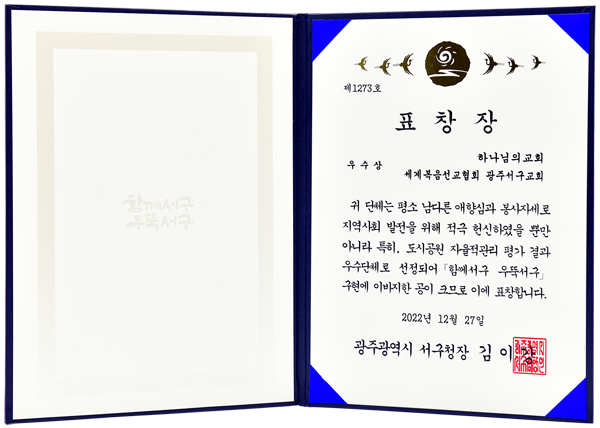 함께서구
우뚝서구
제1273호
표 창 장
우수상
하나님의교회
세계복음선교협회 광주서구교회
귀 단체는 평소 남다른 애향심과 봉사자세로
지역사회 발전을 위해 적극 헌신하였을 뿐만
아니라 특히, 도시공원 자율적관리 평가 결과
우수단체로 선정되어 「함께서구 우뚝서구」
구현에 이바지한 공이 크므로 이에 표창합니다.
2022년 12월 27일
광주광역시 서구청장 김이강